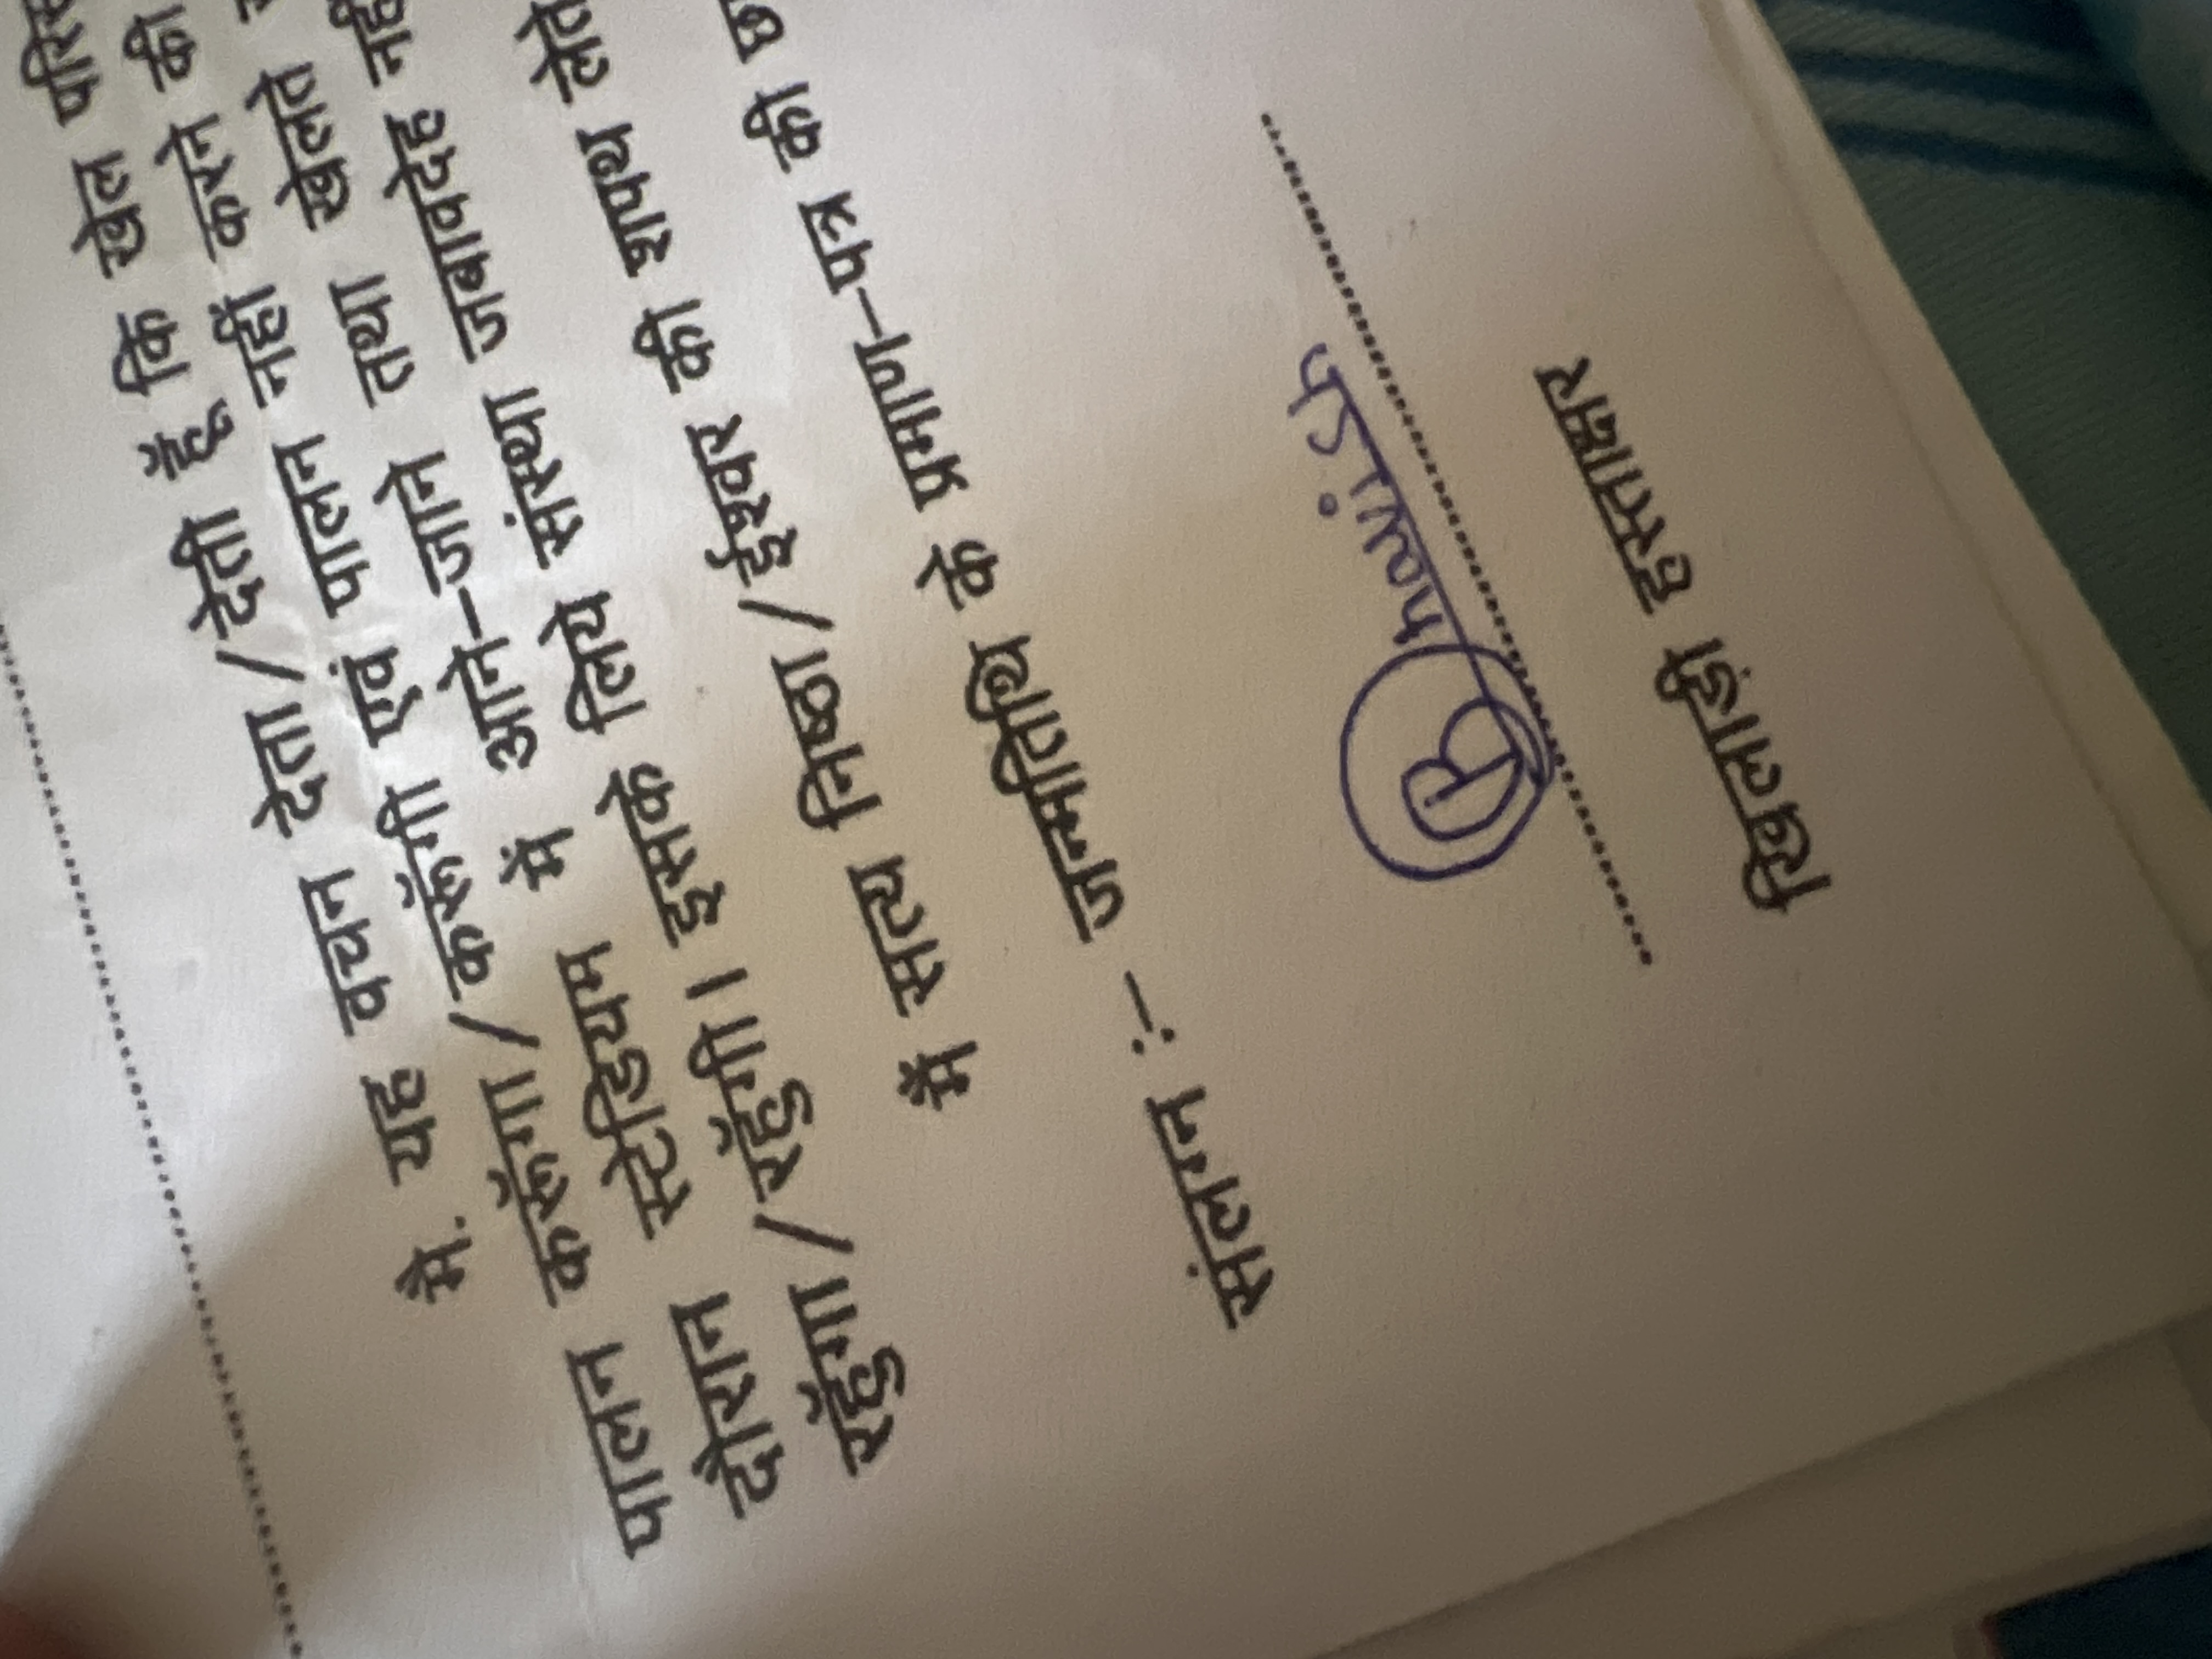 मैं. यह वचन देता / देती हूँ कि खेल
पालन करूँगा / करूँगी एवं पालन नहीं करने की
दौरान स्टेडियम में आने-जाने तथा खेलते
रहूँगा / रहूँगी। इसके लिये संस्था जबावदेह
मैं सत्य निष्ठा / ईश्वर की शपथ
संलग्न :- जन्मतिथि के प्रमाण-पत्र की
Bhavish
खिलाड़ी हस्ताक्षर